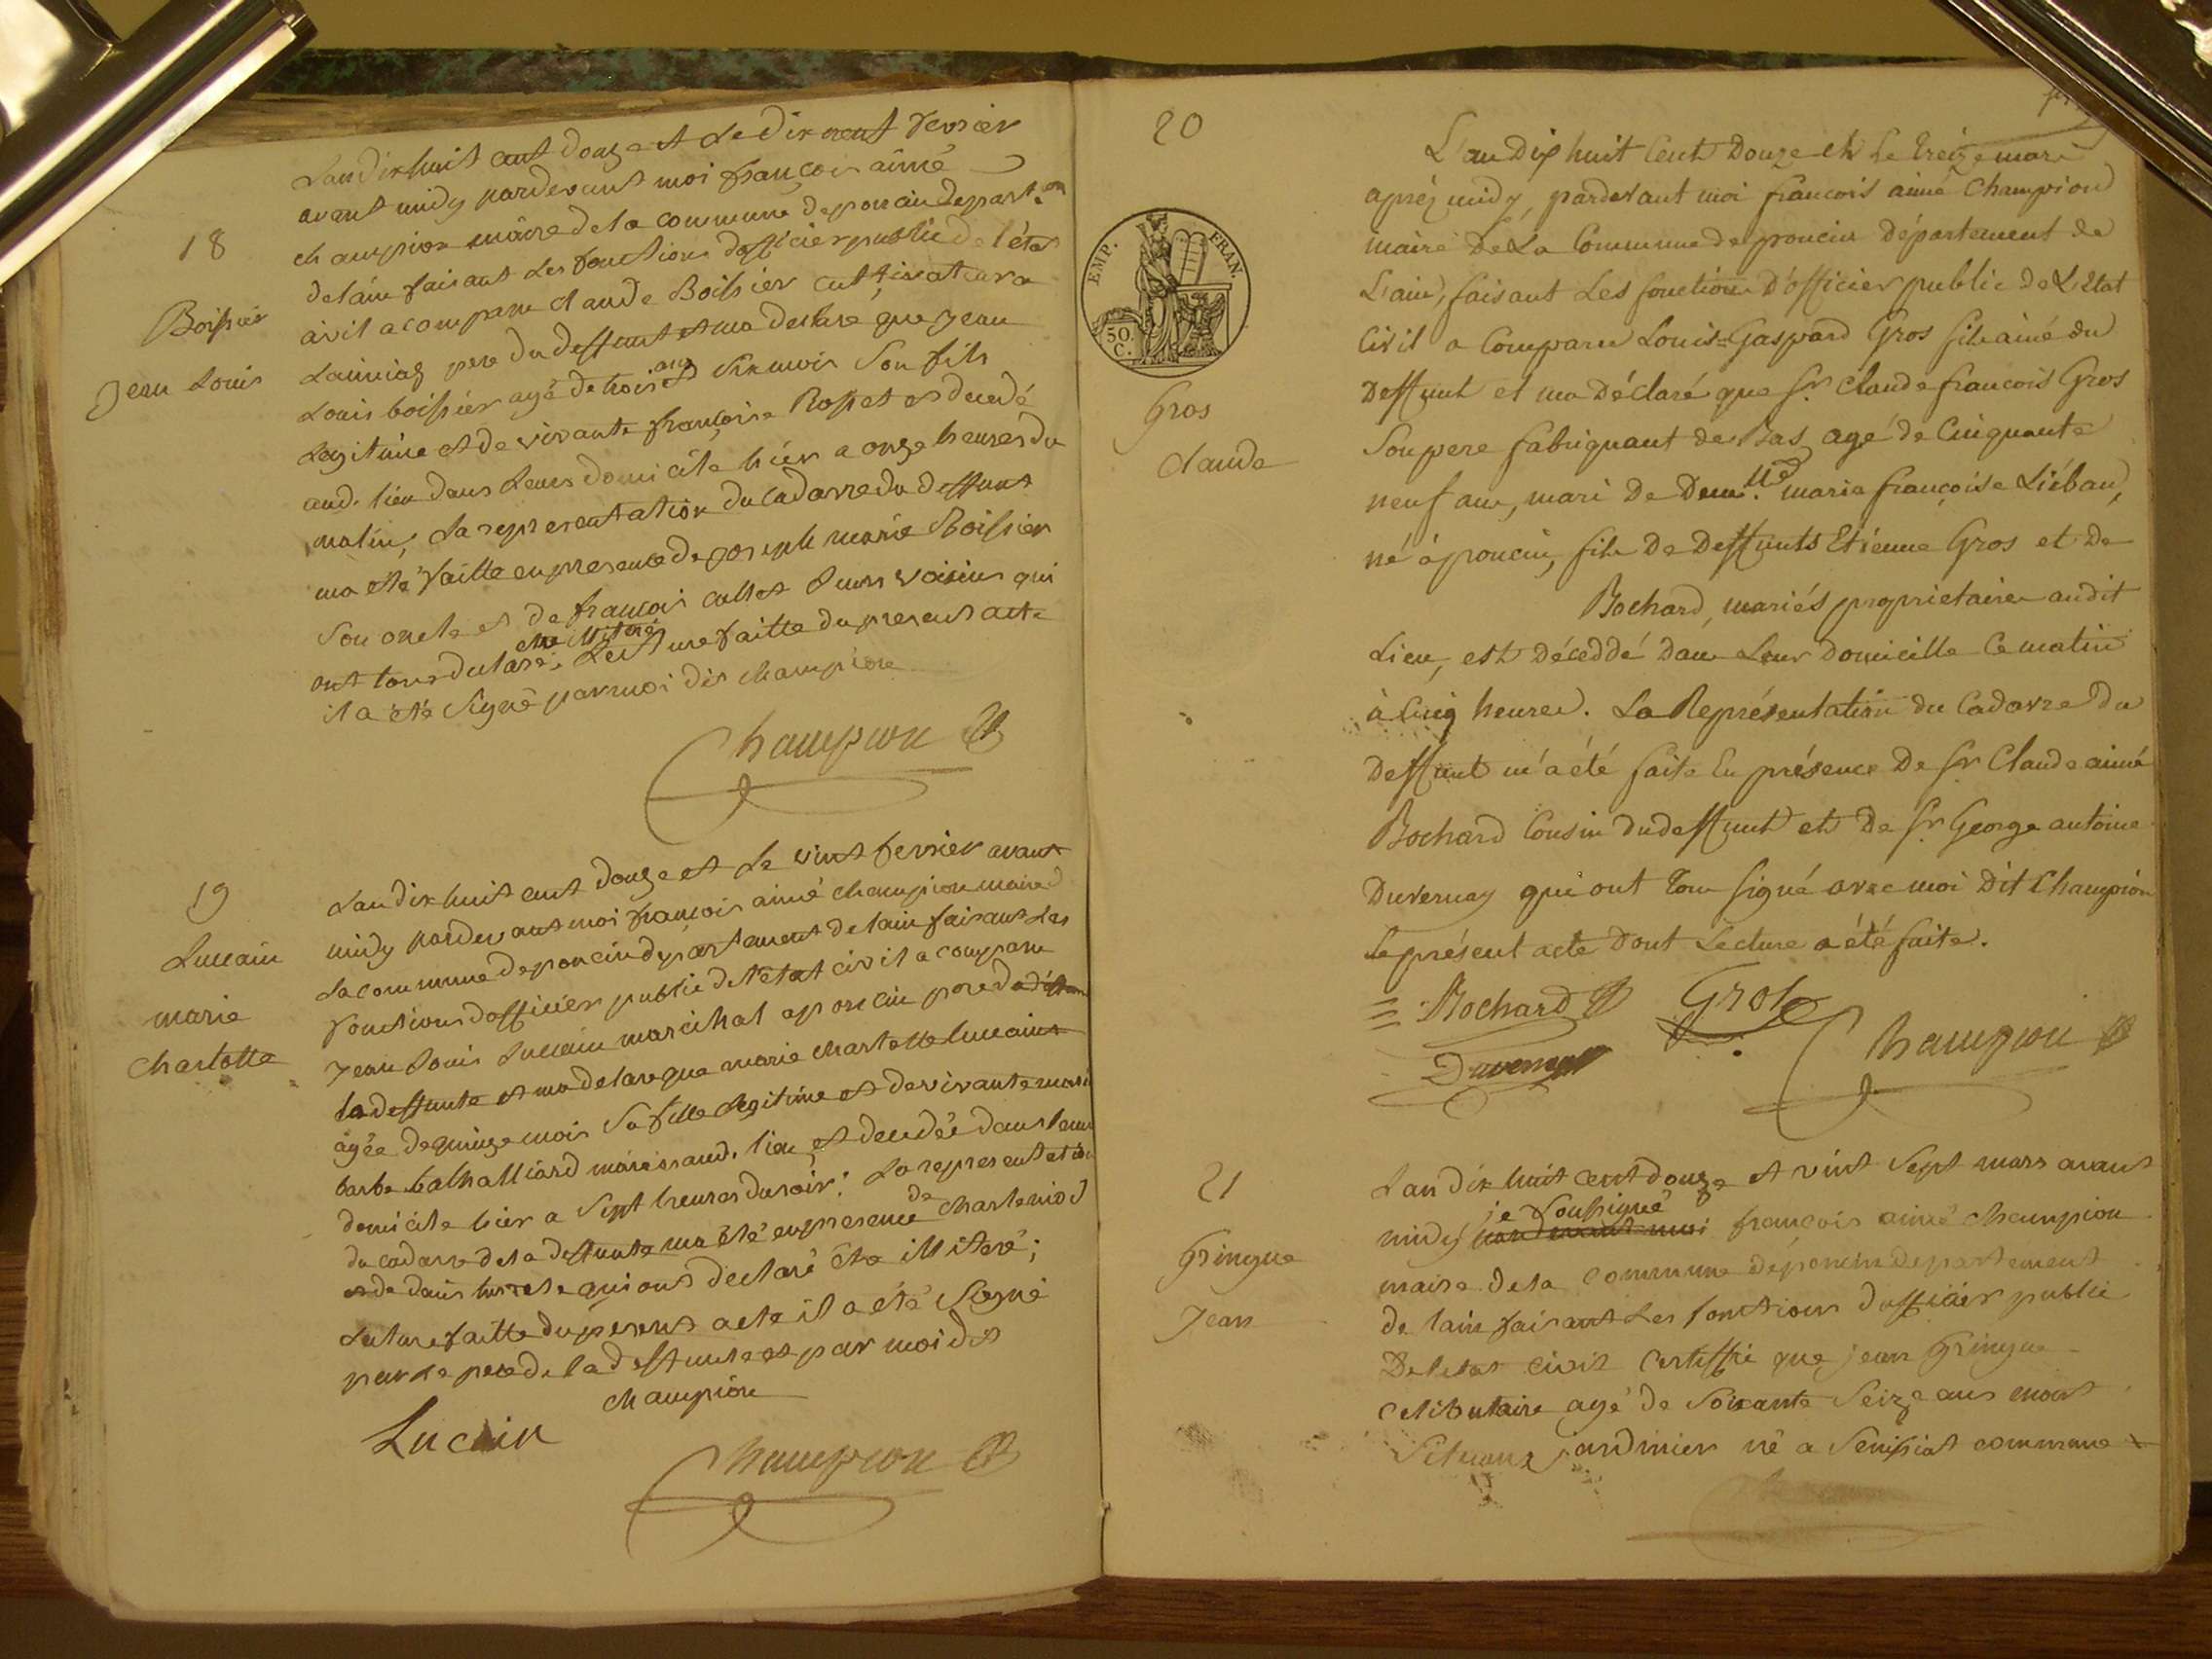 18
Boissier
Jean Louis
Landixhuit cent douze et le dix neuf fevrier
avant midy pardevant moi françois aimé
champion maire de la commune deponcin depart.on
delain faisant les fonctions dofficier public de létat
civil a comparu claude Boissier cultivateur a
pere du deffunt et ma declare que jean
Louis boissier agé de trois ans et six mois son fils
Legitime et de vivante françoise Rosset est decedé
aud. lieu dans leurs domicile hier a onze heures du
matin, la representation du cadavre du deffunt
ma eté faitte en presence de joseph marie Boissier
son oncle et de françois collet leurs voisins qui
ont tous declaré etre illiteré. Lecture faitte du present acte
il a été signé par moi dit champion
Champion
19
Lucain
marie
charlotte
Landixhuit cent douze et le vint fevrier avant
midy pardevant moi françois aimé champion maire d
la commune deponcin departement delain faisant les
fonctions dofficier public de l'etat civil a comparu
jean Louis Lucain marechal aponcin pere de
la deffunte et ma declare que marie charlotte lucain
agée de quinze mois sa fille legitime et de vivante marie
barbe balhalliard mariés aud. lieu est decedée dans leur
domicile hier a sept heures du soir; la representation
du cadavre de la deffunte ma été en presence de charle niod
et de qui ont declaré etre illiteré;
Lecture faitte du present acte il a eté signé
par le pere de la deffunte et par moi dit
champion
Lucain
Champion
20
EMP. FRAN.
50. C.
Gros
claude
L'an Dix huit Cent Douze et le treize mars
après midy, pardevant moi francois aimé Champion
maire De La Commune de poncin département de
L'ain, faisant Les fonctions D'officier public de L'état
Civil a Comparu Louis=Gaspard Gros fils ainé du
Deffunt et ma Déclaré que Sr. Claude francois Gros
Son pere fabriquant de Bas, agé de Cinquante
neuf ans, mari De Dem.lle marie françoise Liébau,
né à poncin, fils De Deffunts Etienne Gros et De
Bochard, mariés proprietaires audit
Lieu, est Déceddé dans Leur domicille Ce matin
à Cinq heures. La Représentation du Cadavre Du
Deffunt m'a été faite En présence De Sr Claude aimé
Bochard Cousin du deffunt et De Sr. George antoine
Duvernay qui ont Tous signé avec moi Dit Champion
le présent acte Dont Lecture a été faite.
Bochard Gros
Duvernay Champion
21
Gringue
Jean
Landixhuit cent douze et vint sept mars avant
midy pardevant moi je soussigné françois aimé champion
maire de la commune deponcin departement
de lain faisant les fonctions dofficier public
De letat civil certiffie que jean Gringue
celibataire agé de soixante seize ans mort
jardinier né a Senissiat commune